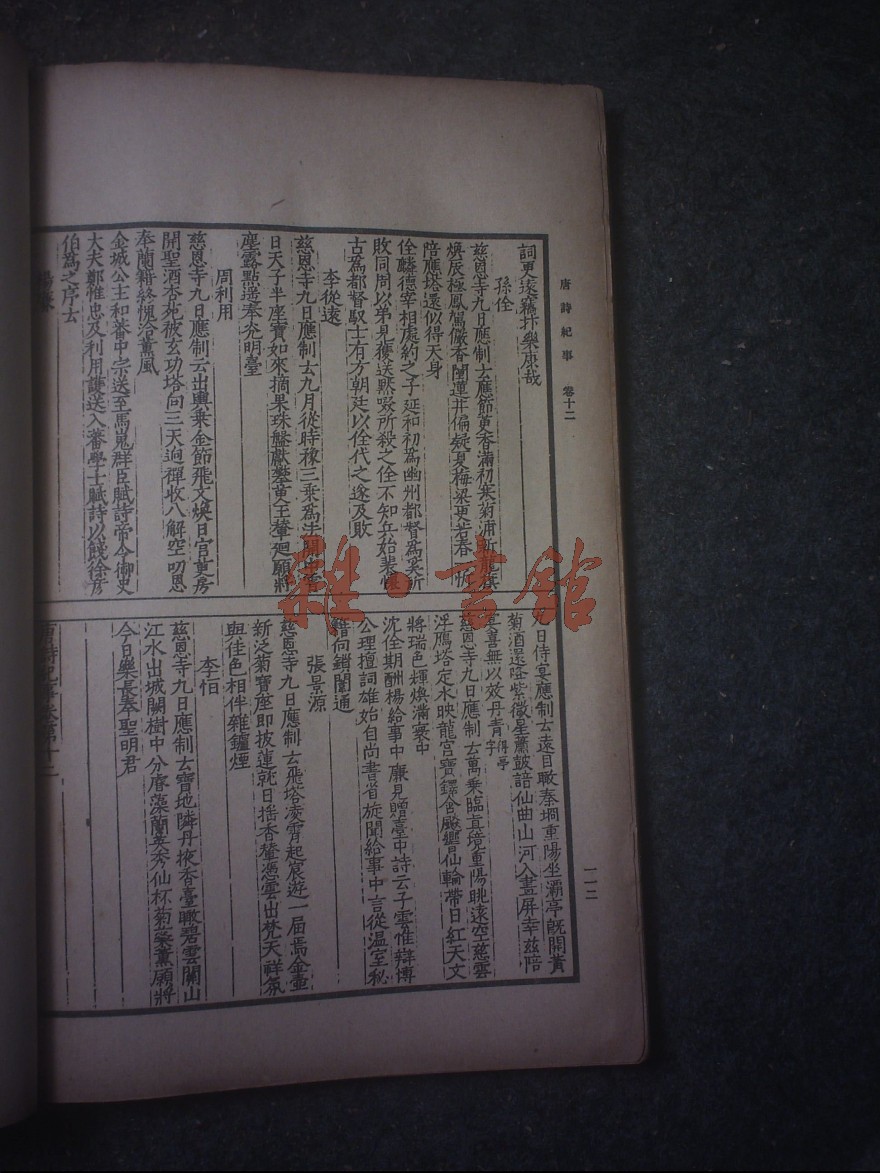 唐詩紀事 卷十二
詞更逡竊抃樂康哉
孫佺
慈恩寺九日應制云應節萸香滿初寒菊浦新龍旂
煥辰極鳳駕儼香闉蓮井偏疑夏梅梁更若春一忻
陪應塔還似得天身
佺麟德宰相處約之子延和初為幽州都督為奚所
敗同周以弟見獲送默啜所殺之佺不知兵始裴懷
古為都督馭士有方朝廷以佺代之遂及敗
李從遠
慈恩寺九日應制云九月從時豫三乘為法開中霄
日天子半座寶如來摘果珠盤獻攀萸玉輦廻願將
塵露點遥奉光明臺
周利用
慈恩寺九日應制云出輿乘金節飛文煥日宮萸房
開聖酒杏苑被玄功塔向三天迥禪收八解空叨恩
奉蘭籍終愧洽薰風
金城公主和蕃中宗送至馬嵬群臣賦詩帝令御史
大夫鄭惟忠及利用護送入蕃學士賦詩以餞徐彦
伯為之序云
九日侍宴應制云遠目瞰秦坰重陽坐灞亭既開黄
菊酒還降紫微星蕭鼓諳仙曲山河入畫屏幸兹陪
宴喜無以效丹青得亭字
慈恩寺九日應制云萬乘臨真境重陽眺遠空慈雲
浮鴈塔定水映龍宮寶鐸含飈響仙輪帶日紅天文
將瑞色輝煥滿寰中
沈佺期酬楊給事中廉見贈臺中詩云子雲惟辯博
公理擅詞雄始自尚書省旋聞給事中言從温室秘
籍向鎖闈通
張景源
慈恩寺九日應制云飛塔凌霄起宸遊一屆焉金壺
新泛菊寶座即披蓮就日摇香輦憑雲出梵天祥氛
與佳色相伴雜鑪煙
李恒
慈恩寺九日應制云寶地隣丹掖香臺瞰碧雲關山
江水出城闕樹中分睿藻蘭英秀仙杯菊蘂薰願將
今日樂長奉聖明君
唐詩紀事卷第十二
一一二
雜·書館